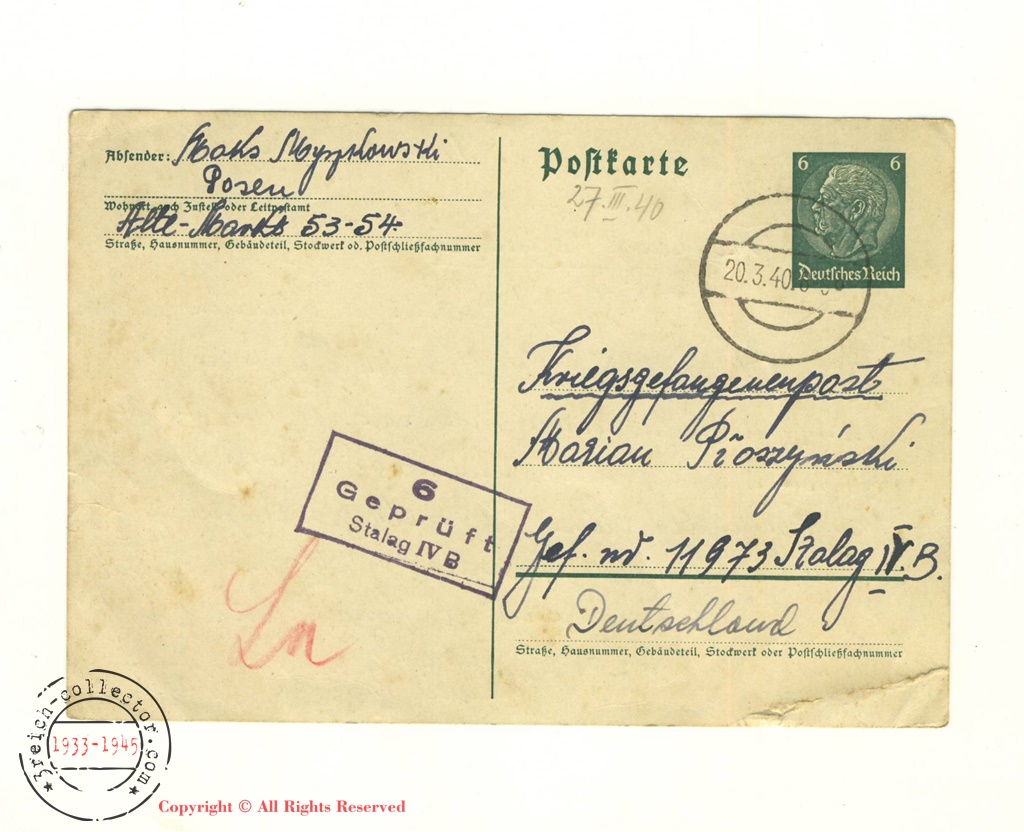 Absender: Maks Myszkowski
Posen
Wohnort, auch Zustell- oder Leitpostamt
Alte-Markt 53-54
Straße, Hausnummer, Gebäudeteil, Stockwerk od. Postschließfachnummer
Postkarte
27.III.40
6 6
Deutsches Reich
20.3.40
Kriegsgefangenenpost
Marian Płoszyński
Gef. nr. 11973 Stalag IV.B.
Deutschland
Straße, Hausnummer, Gebäudeteil, Stockwerk oder Postschließfachnummer
6
Geprüft
Stalag IV B
3reich-collector.com
1933-1945
Copyright © All Rights Reserved